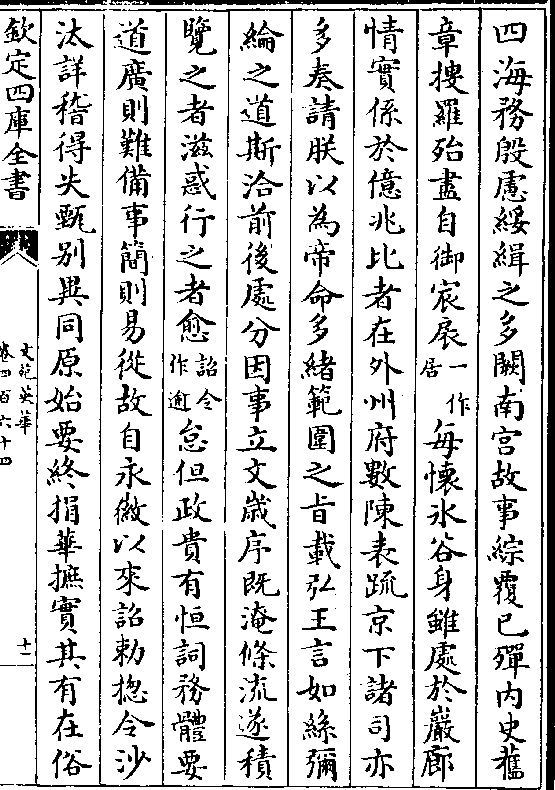 四海務殷慮綏緝之多闕南宮故事綜覆已殫内史舊
章搜羅殆盡自御宸扆一作居每懷氷谷身雖處於巖廊
情實係於億兆比者在外州府數陳表疏京下諸司亦
多奏請朕以為帝命多緒範圍之旨載弘王言如絲彌
綸之道斯洽前後處分因事立文嵗序既淹條流遂積
覽之者滋惑行之者愈詔令作逾怠但政貴有恒詞務體要
道廣則難備事簡則易從故自永徽以來詔勅揔令沙
汰詳稽得失甄别異同原始要終捐華摭實其有在俗
欽定四庫全書
文苑英華
卷四百六十四
十一